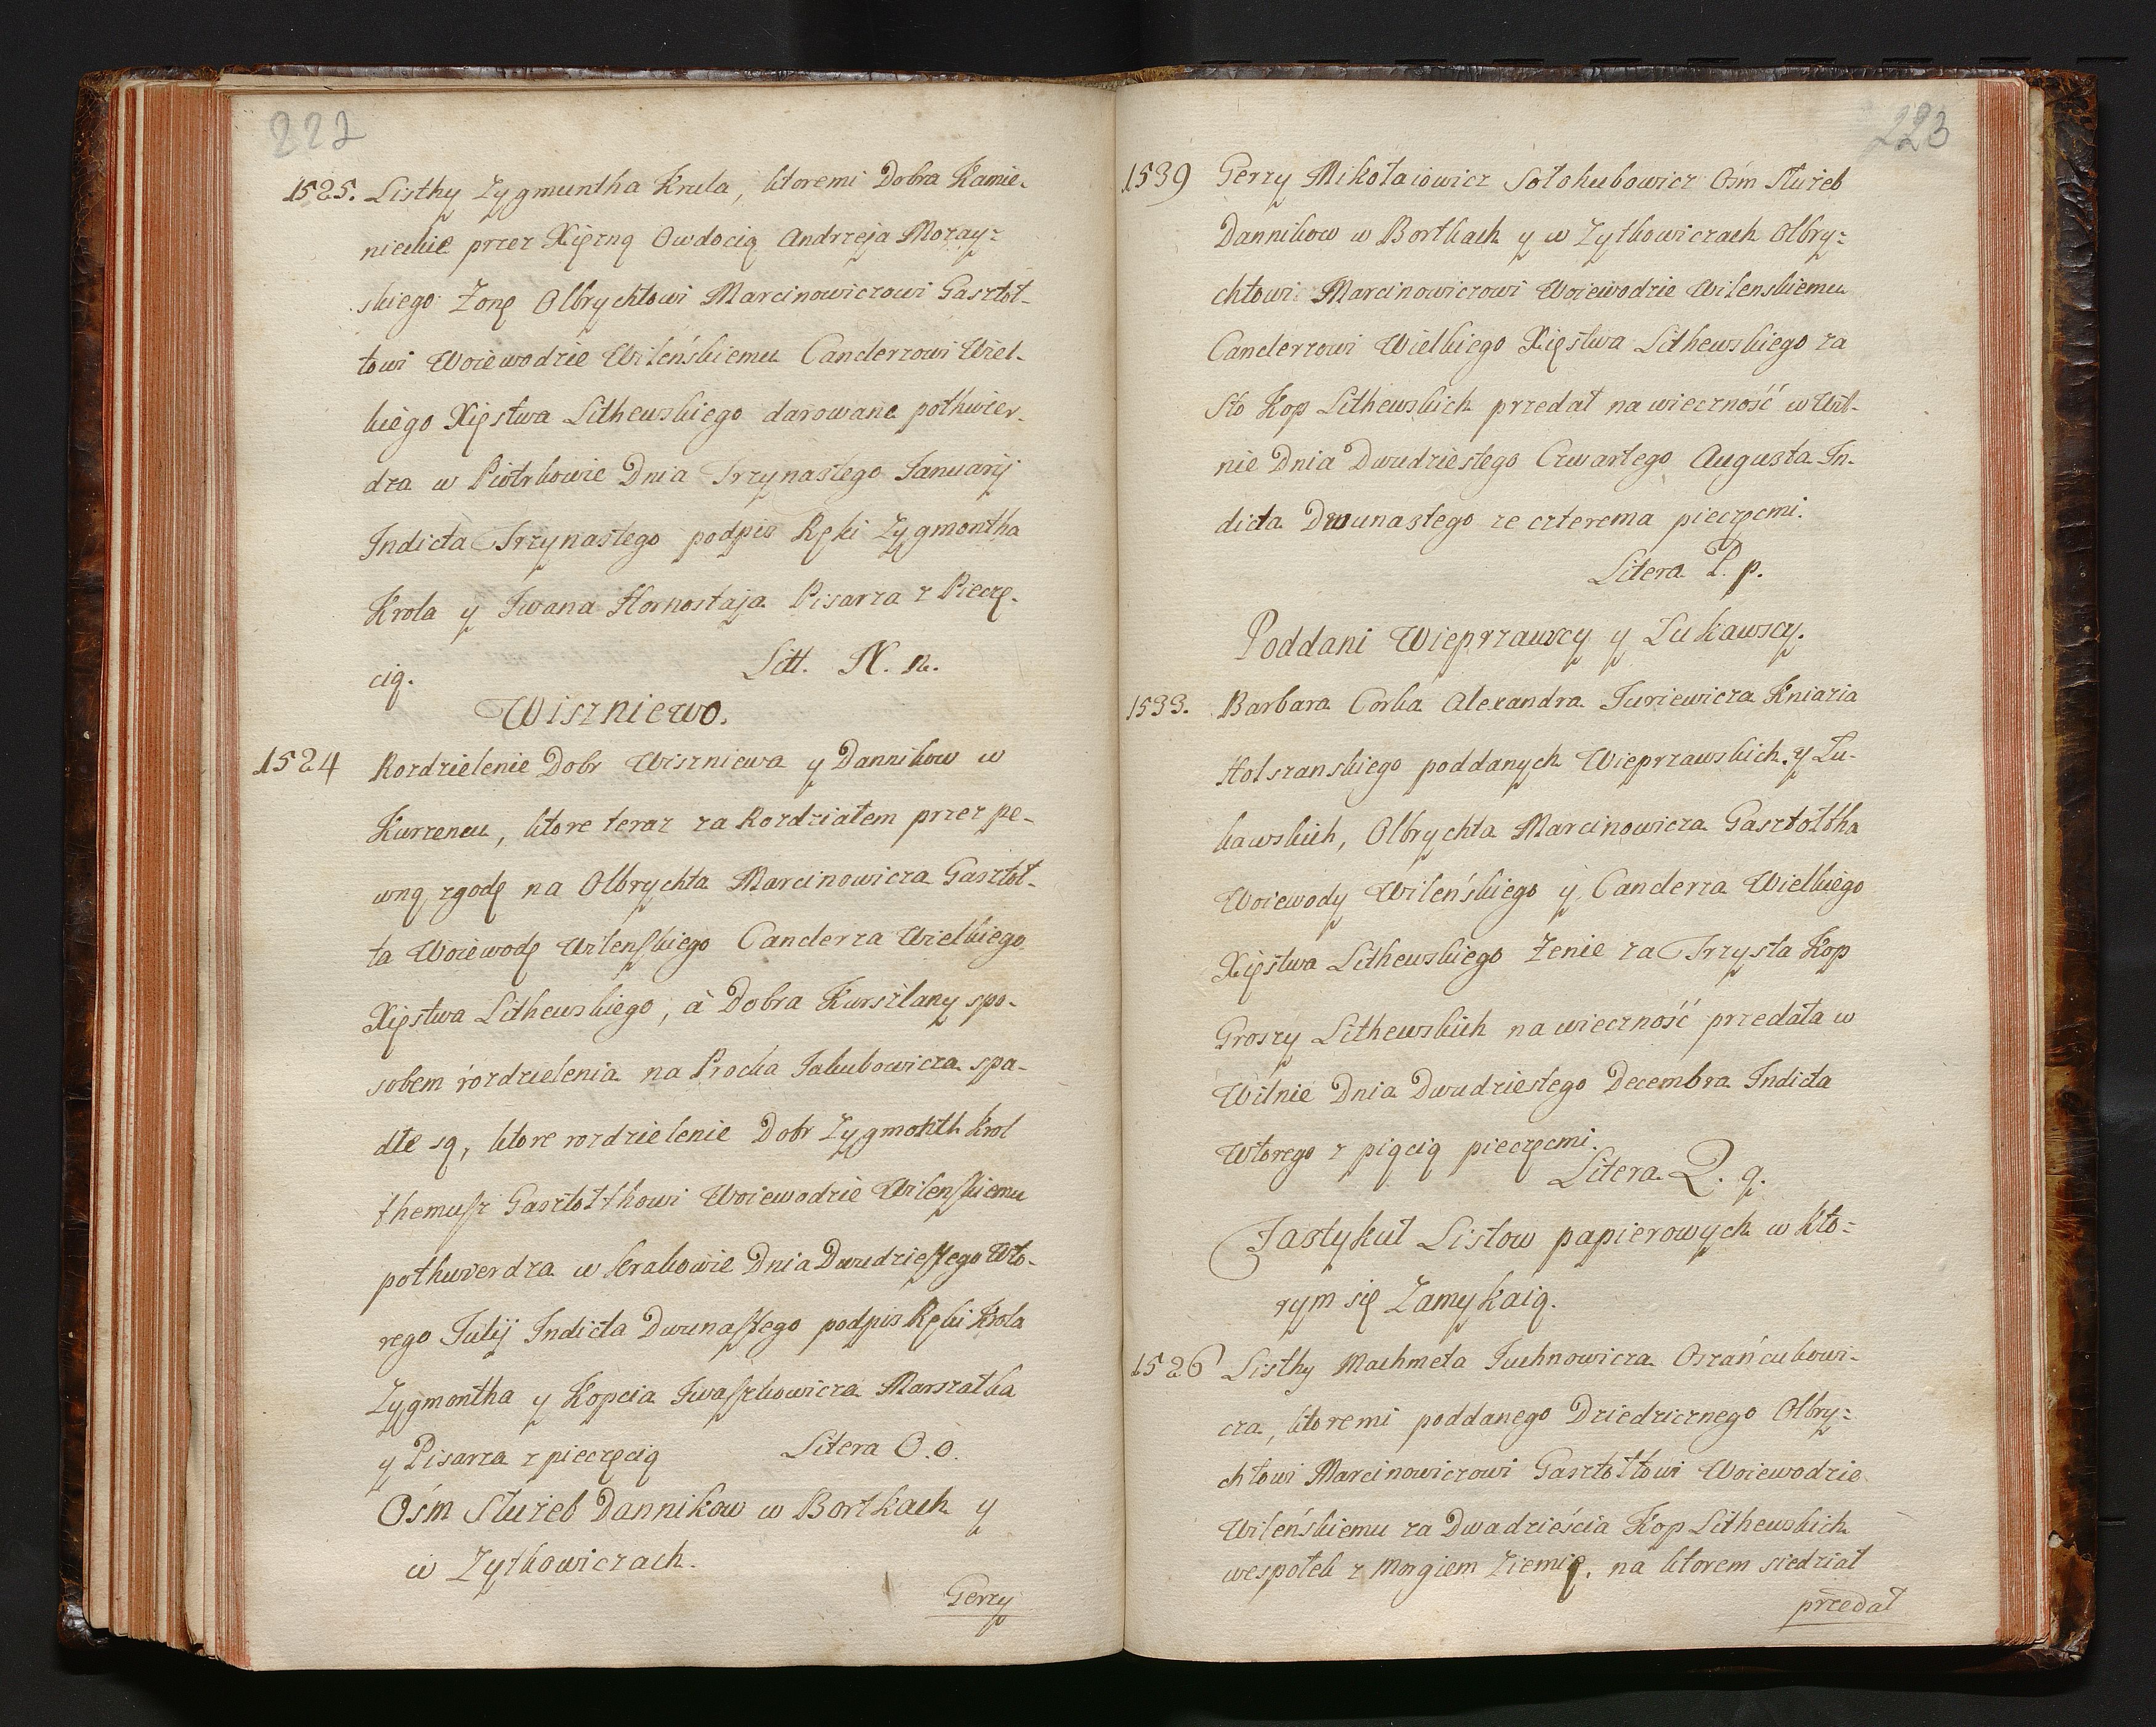 222
1525. Listhy Zygmuntha Krula, ktoremi Dobra Kamie-
nieckie przez Xięzną Owdocią Andrzeja Mozay-
skiego Zonę Olbrychtowi Marcinowiczowi Gasztoł-
towi Woiewodzie Wileńskiemu Canclerzowi Wiel-
kiego Xięstwa Lithewskiego darowane pothwier-
dza w Piotrkowie Dnia Trzynastego Januarij
Indicta Trzynastego podpis Ręki Zygmontha
Krola y Iwana Hornostaja Pisarza z Pieczę-
cią. Litt. N. n.
Wiszniewo.
1524 Rozdzielenie Dobr Wiszniewa y Dannikow w
Kurzencu, ktore teraz za Rozdziałem przez pe-
wną zgodę na Olbrychta Marcinowicza Gasztoł-
ta Woiewodę Wilenskiego Canclerza Wielkiego
Xięstwa Lithewskiego, à Dobra Kurszłany spo-
sobem rozdzielenia na Procka Jakubowicza spa-
dłe są, ktore rozdzielenie Dobr Zygmonth Krol
themusz Gasztołthowi Woiewodzie Wilenskiemu
pothwerdza w Krakowie Dnia Dwudziestego Wto-
rego Julij Indicta Dwunastego podpis Ręki Krola
Zygmontha y Kopcia Iwaszkowicza Marszałka
y Pisarza z pieczęcią Litera O. o.
Ośm Służeb Dannikow w Bortkach y
w Zytkowiczach.
Gerzy
223
1539 Gerzy Mikołaiowicz Sołohubowicz Ośm Służeb
Dannikow w Bortkach y w Zytkowiczach Olbry-
chtowi Marcinowiczowi Woiewodzie Wilenskiemu
Canclerzowi Wielkiego Xięstwa Lithewskiego za
Sto Kop Lithewskich przedał na wieczność w Wil-
nie Dnia Dwudziestego Czwartego Augusta In-
dicta Dwunastego ze czterema pieczęcmi.
Litera P. p.
Poddani Wieprzawscy y Lukawscy.
1533. Barbara Corka Alexandra Juriewicza Kniazia
Holszanskiego poddanych Wieprzawskich y Lu-
kawskich, Olbrychta Marcinowicza Gasztołtha
Woiewody Wileńskiego y Canclerza Wielkiego
Xięstwa Lithewskiego Zenie za Trzysta Kop
Groszy Lithewskich na wieczność przedała w
Wilnie Dnia Dwudziestego Decembra Indicta
Wtorego z piącią pieczęcmi.
Litera Q. q.
Fastykuł Listow papierowych w kto-
rym się Zamykaią.
1526 Listhy Machmeta Juchnowicza Oszańcukowi-
cza, ktoremi poddanego Dziedzicznego Olbry-
chtowi Marcinowiczowi Gasztołtowi Woiewodzie
Wileńskiemu za Dwadzieścia Kop Lithewskich
wespołek z Morgiem Ziemię, na ktorem siedział
przedał